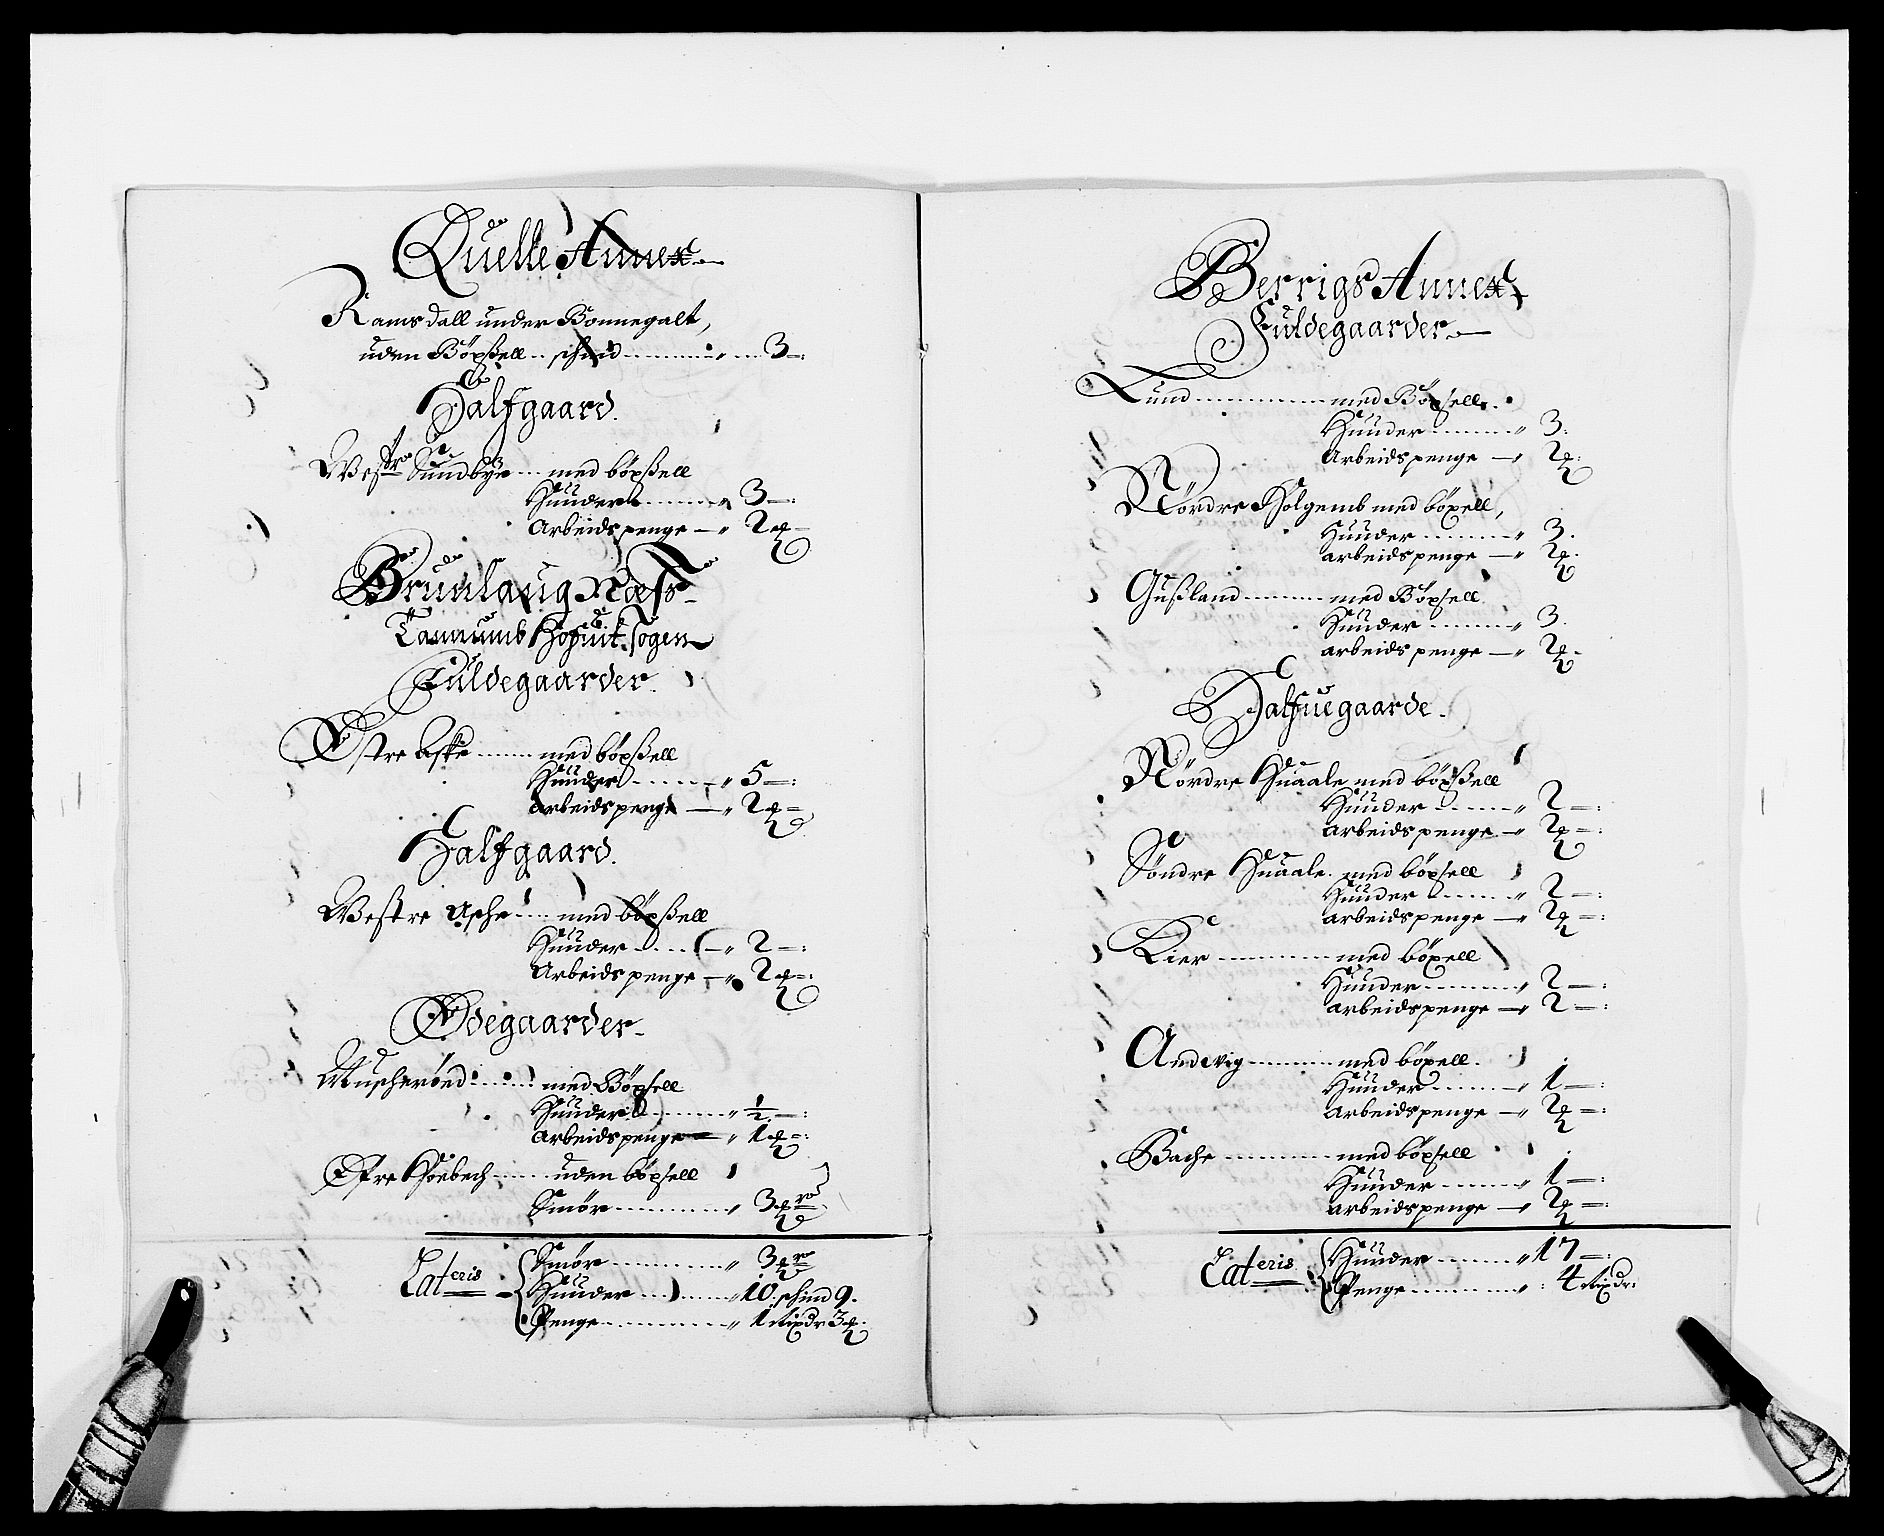 Quelle Annex
Ramsdall under Bonnegalt,
uden Böxsell .. schind ........ " ... 3 –:
Halfgaard.
Vestre Sundbye ... med böxsell
Huuder ........ " 3 –:
Arbeidspenge — " 2 ȩ –
Brunlaug Næss
Tannumb Hofuit sogen
Fuldegaarder.
Østre Aske ....... med böxsell
Huuder ........ " 5 –:
Arbeidspenge — " 2 ȩ =
Halfgaard.
Vestre Asche .... med böxsell
Huuder ...... " 2 –:
Arbeidspenge — " 2 ȩ –:
Ødegaarder
Muscheröed ...... med Böxsell
Huuder ........ " ½ –:
Arbeidspenge — " 1 ȩ =:
Østre Höebech ...... uden böxsell
Smör ............ " 3
Lateris
Smör ............ " 3
Huuder ........ " 10. schind 9.
Penge ............ " 1 Rixdr 3 ȩ.
Berrigs Annex
Fuldegaarder
Lund ............ med Böxsell.
Huuder ........ " 3:
Arbeidspenge — " 2 ȩ:
Nördre Holgemb med böxell,
Huuder ........ " 3.
arbeidspenge — " 2 ȩ.
Gussland ........ med Böxsell
Huuder ........ " 3.
arbeidspenge — " 2 ȩ –
Halfuegaarde.
Nördre Huaale med böxsell
Huuder ........ " 2 –:
arbeidspenge — " 2 ȩ =:
Söndre Huaale. med böxsell
Huuder ........ " 2 –:
arbeidspenge — " 2 ȩ =:
Kier ............ med böxell
Huuder ........ " 2 –:
arbeidspenge — " 2 =:
Andvig ........ med böxell.
Huuder ........ " 1 –:
arbeidspenge — " 2 ȩ =:
Bache ............ med böxsell
Huuder ........ " 1 –:
arbeidspenge — " 2 ȩ =:
Lateris
Huuder ........ " 17 –:
Penge ............ " : 4 Rixdr: